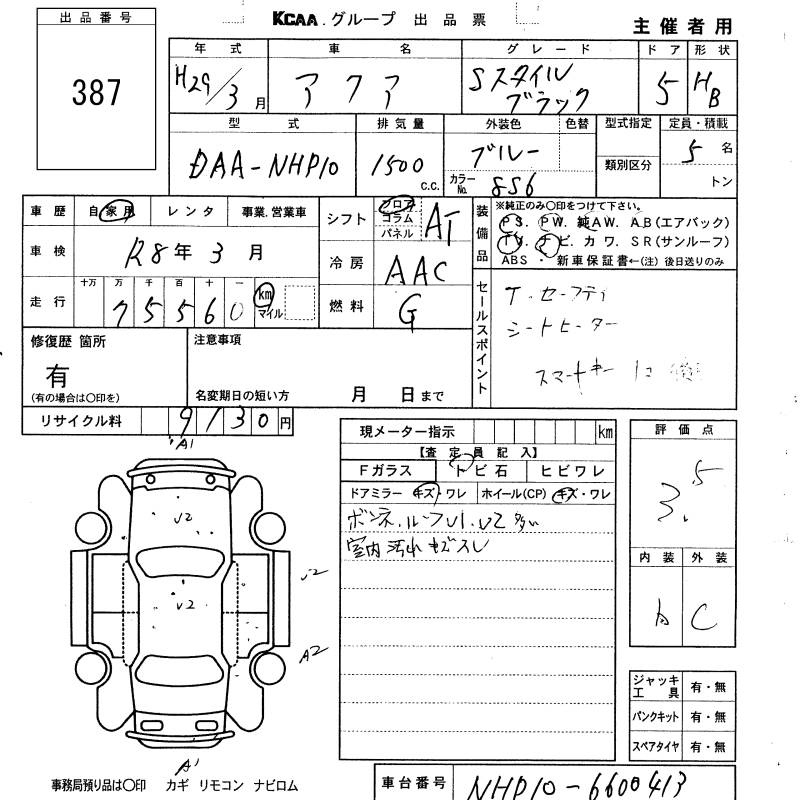 KCAA. グループ 出品票
主催者用
出品番号
387
年式 車名 グレード ドア 形状
H29/3月 アクア Sスタイル ブラック 5 HB
型式 排気量 外装色 色替 型式指定 定員・積載
DAA-NHP10 1500 C.C. ブルー 類別区分 5名
カラーNo. 8S6 トン
車歴 自家用 レンタ 事業.営業車 シフト フロア コラム パネル AT
装備品
※純正のみ〇印をつけて下さい。
PS. PW. 純AW. AB(エアバック)
TV. ナビ. カワ. SR(サンルーフ)
ABS ・ 新車保証書←(注)後日送りのみ
車検 R8年 3月 冷房 AAC
走行 十万 万 千 百 十
75560 km マイル 燃料 G
セールスポイント
T.セーフティ
シートヒーター
スマートキー
修復歴 箇所 注意事項
有
(有の場合は〇印を) 名変期日の短い方 月 日まで
リサイクル料 9130円
現メーター指示 km
【査定員記入】
Fガラス トビ石 ヒビワレ
ドアミラー キズ・ワレ ホイール(CP) キズ・ワレ
ボンネ.ルーフU1.U2多い
室内汚れキズスレ
評価点
3.5
内装 外装
C
A1
U2
U2
U2
A2
A1
ジャッキ工具 有・無
パンクキット 有・無
スペアタイヤ 有・無
事務局預り品は〇印 カギ リモコン ナビロム
車台番号 NHP10-6600413